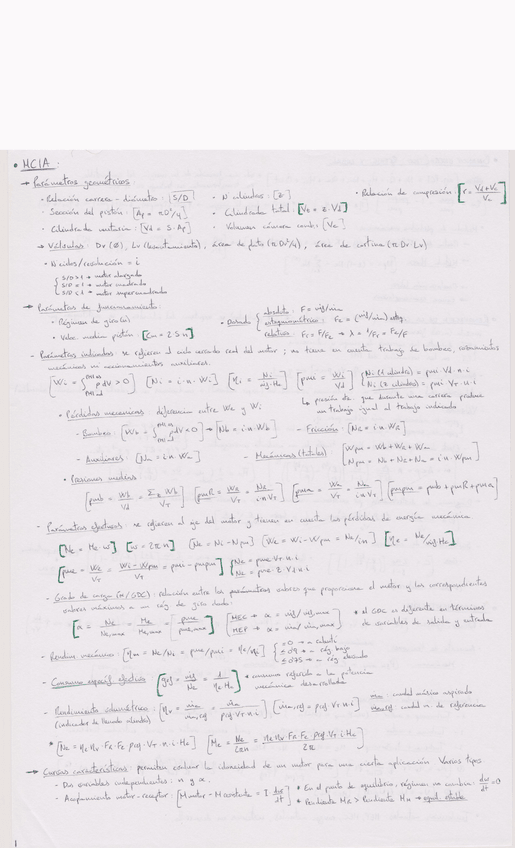 • MCIA:
→ Parámetros geométricos:
· Relación carrera - diámetro: [S/D] · N cilindros: [z] · Relación de compresión [r = (Vd+Vc)/Vc]
· Sección del pistón: [Ap = πD²/4] · Cilindrada total: [VD = z·Vd]
· Cilindrada unitaria: [Vd = S·Ap] · Volumen cámara comb.: [Vc]
→ Válvulas: Dv (Ø), Lv (levantamiento), área de (π Dv²/4), área de cortina (π Dv Lv)
· N ciclos/revolución = i
S/D > 1 → motor alargado
S/D = 1 → motor cuadrado
S/D < 1 → motor supercuadrado
→ Parámetros de funcionamiento:
· Régimen de giro (n)
· Veloc. media pistón: [Cm = 2·S·n]
· Dosado { absoluto: F = ṁf/ṁa
estequiométrico: Fe = (ṁf/ṁa) esteq.
relativo: Fr = F/Fe → λ = 1/Fr = Fe/F
- Parámetros indicados: se refieren al ciclo cerrado real del motor; no tienen en cuenta trabajo de bombeo, rozamientos
mecánicos ni accionamientos auxiliares.
[Wi = ∫ p dV > 0] [Ni = i·n·Wi] [ηi = Ni/(ṁf·Hc)] [pmi = Wi/Vd] { Ni (1 cilindro) = pmi Vd·n·i
Ni (z cilindros) = pmi VT·n·i
↳ presión que durante una carrera produce
un trabajo igual al trabajo indicado
• Pérdidas mecánicas: diferencia entre We y Wi
- Bombeo: [Wb = ∫ p dV < 0] → [Nb = i·n·Wb] - Fricción: [NR = i·n·WR]
- Auxiliares: [Na = i·n·Wa] - Mecánicas (totales) [Wpm = Wb + WR + Wa
Npm = Nb + NR + Na = i·n·Wpm]
• Presiones medias
[pmb = Wb/Vd = Σz Wb/VT] [pmR = WR/VT = NR/(i·n·VT)] [pma = Wa/VT = Na/(i·n·VT)] [pmpm = pmb + pmR + pma]
- Parámetros efectivos: se refieren al eje del motor y tienen en cuenta las pérdidas de energía mecánica
[Ne = Me·ω] [ω = 2πn] [Ne = Ni - Npm] [We = Wi - Wpm = Ne/in] [ηe = Ne/ṁf·Hc]
[pme = We/VT = (Wi - Wpm)/VT = pmi - pmpm] { Ne = pme·VT·n·i
Ne = pme·z·Vd·n·i
- Grado de carga (α / GDC): relación entre los parámetros que proporciona el motor y los correspondientes
valores máximos a un rég. de giro dado:
[α = Ne/Ne,max = Me/Me,max = pme/pme,max] [MEC → α = ṁf/ṁf,max
MEP → α = ṁa/ṁa,max] * el GDC es diferente en términos
de variables de salida y entrada
- Rendim. mecánico: [ηm = Ne/Ni = pme/pmi = ηe/ηi] { = 0 → a ralentí
≤ 0'9 → a rég. bajo
≤ 0'75 → a rég. elevado
- Consumo específ. efectivo [gef = ṁf/Ne = 1/(ηe·Hc)] * consumo referido a la potencia
mecánica desarrollada
- Rendimiento volumétrico: [ηv = ṁa/ṁa,ref = ṁa/(ρref·VT·n·i)] [ṁa,ref = ρref·VT·n·i] ṁa: caudal másico aspirado
(indicador de llenado cilindro) ṁa,ref: caudal m. de referencia
* [Ne = ηe·ηv·Fr·Fe·ρref·VT·n·i·Hc] [Me = Ne/2πn = ηe·ηv·Fr·Fe·ρref·VT·i·Hc/2π]
→ Curvas características: permiten evaluar la idoneidad de un motor para una cierta aplicación. Varios tipos
- Dos variables independientes: n y α.
- Acoplamiento motor-receptor: [Mmotor - Mresistente = I·dω/dt] * En el punto de equilibrio, régimen no cambia: dω/dt = 0
* Pendiente MR > Pendiente MM → equil. estable
1